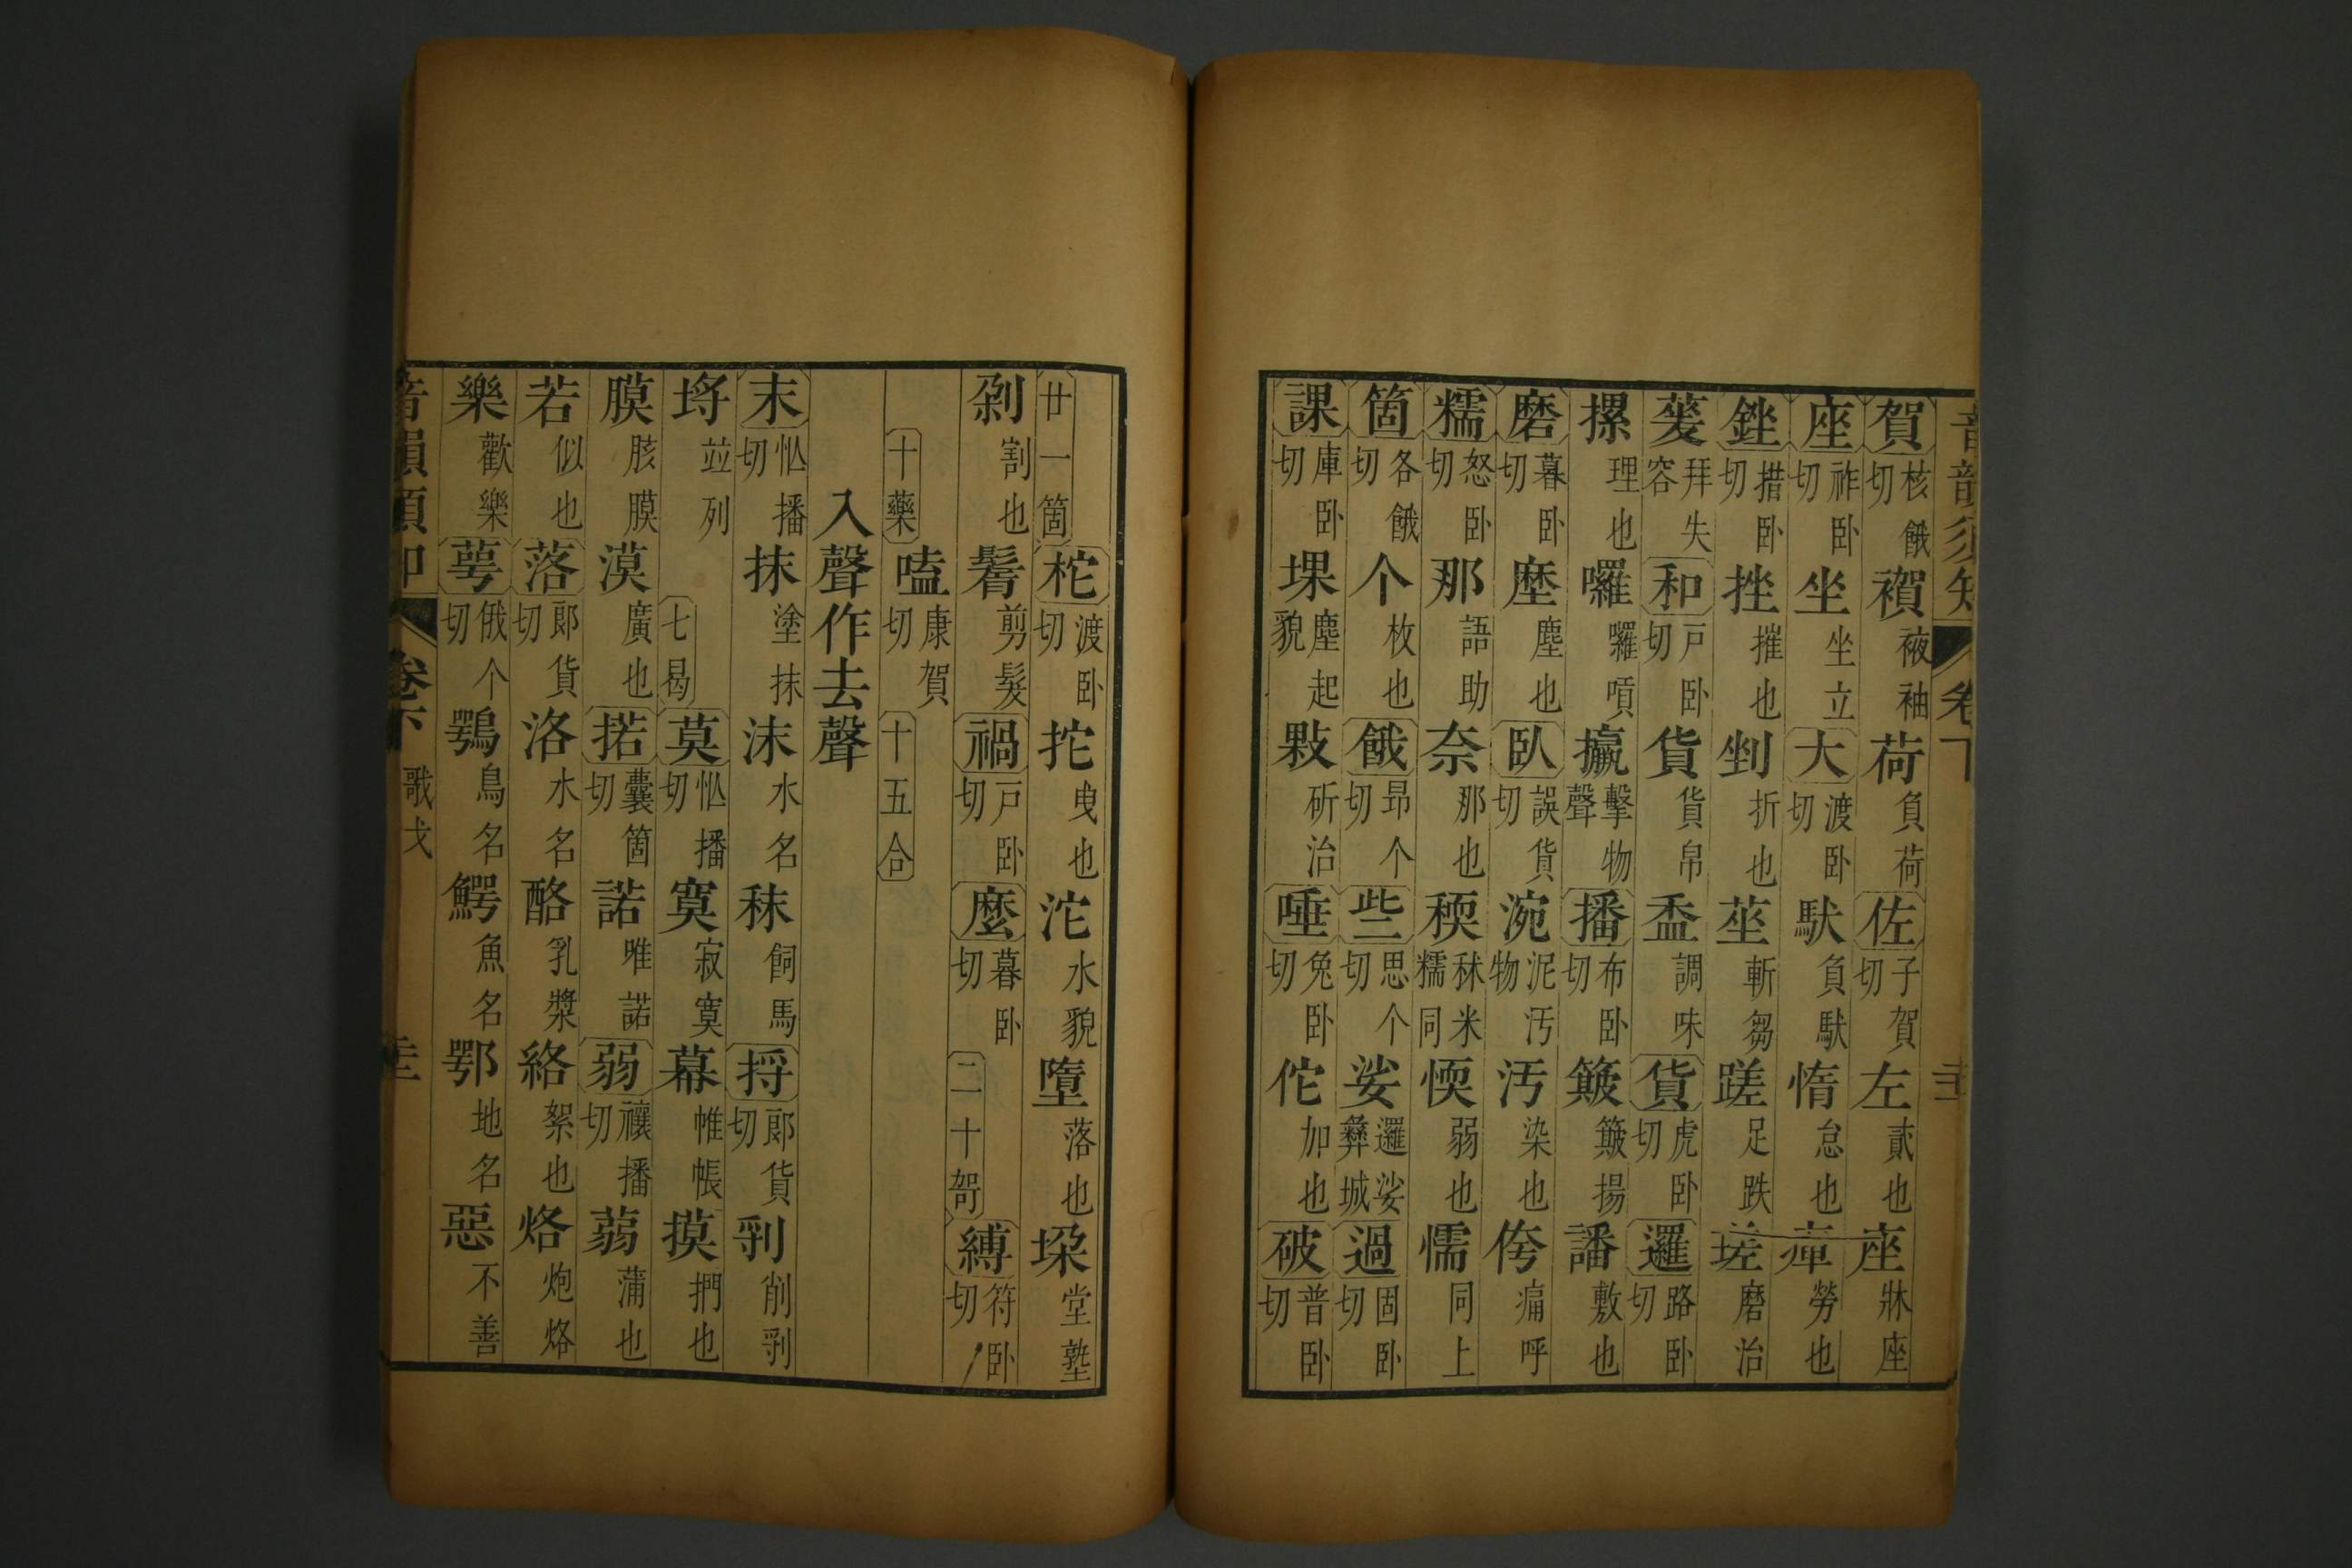 音韻須知 卷下
賀核餓切 䙐袯袖 荷負荷 佐子賀切 左貳也 座牀座
座祚卧切 坐坐立 大渡卧切 馱負馱 惰怠也 勞也
銼措卧切 挫摧也 剉折也 莝斬芻 蹉足跌 磋磨治
蓌拜失容 和戶卧切 貨貨帛 盉調味 貨虎卧切 邏路卧切
摞理也 囉囉唝 攭擊物聲 播布卧切 簸簸揚 譒敷也
磨暮卧切 塺塵也 臥誤貨切 涴泥汚物 汚染也 侉痛呼
糯怒卧切 那語助 奈那也 稬秫米糯同 愞弱也 懦同上
箇各餓切 个枚也 餓昂个切 些思个切 娑邏娑彝城 過固卧切
課庫卧切 堁塵起貌 敤斫治 唾兔卧切 佗加也 破普卧切
廿一箇 柁渡卧切 拕曳也 沱水貌 墮落也 垜堂塾
剁割也 鬌剪髮 禍戶卧切 麼暮卧切 二十哿 縛符卧切
十藥 嗑康賀切 十五合
入聲作去聲
末怭播切 抹塗抹 沫水名 秣飼馬 捋郞貨切 剟削剟
埓竝列 七曷 莫怭播切 寞寂寞 幕帷帳 摸捫也
膜胲膜 漠廣也 掿囊箇切 諾唯諾 弱禳播切 蒻蒲也
若似也 落郞貨切 洛水名 酪乳漿 絡絮也 烙炮烙
樂歡樂 萼俄个切 鶚鳥名 鰐魚名 鄂地名 惡不善
卷下 歌戈